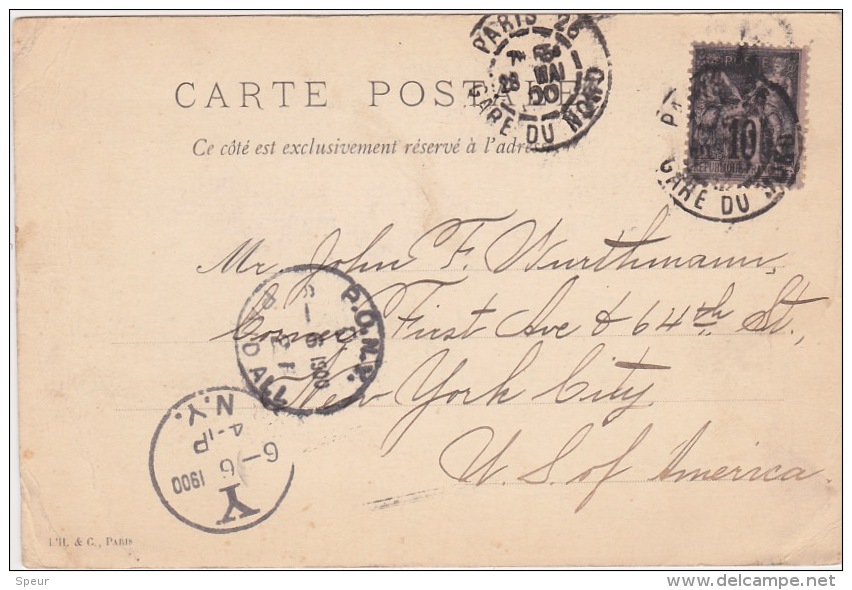 CARTE POSTALE
Ce côté est exclusivement réservé à l'adresse
PARIS 26
7E
28 MAI
00
GARE DU NORD
POSTE
10
GARE DU NORD
Mr. John F. Wurthmann,
Corner First Ave & 64th St.,
New York City
U. S. of America.
P.O.N.Y.
6-6
1900
PAID ALL
N.Y.
4-P
6-6
1900
Y
L'H. & C., PARIS
Speur
delcampe.net